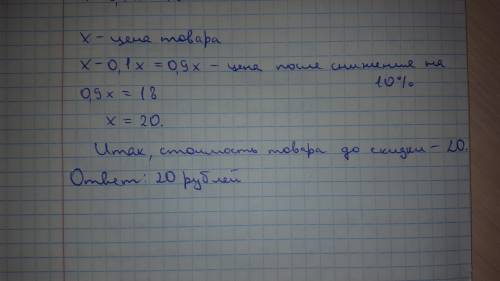 x – цена товара
x – 0,1x = 0,9x – цена после снижения на
10%
0,9x = 18
x = 20.
Итак, стоимость товара до скидки – 20.
Ответ: 20 рублей